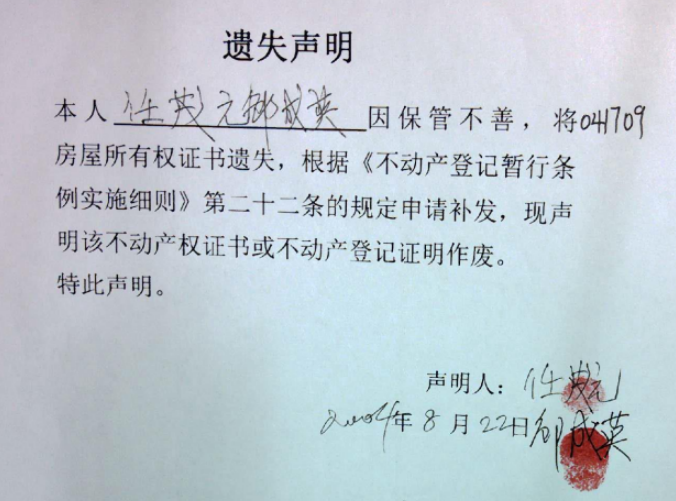 遗失声明
本人任茂元 成英因保管不善，将041709
房屋所有权证书遗失，根据《不动产登记暂行条
例实施细则》第二十二条的规定申请补发，现声
明该不动产权证书或不动产登记证明作废。
特此声明。
声明人：任茂元
年8月22日 成英